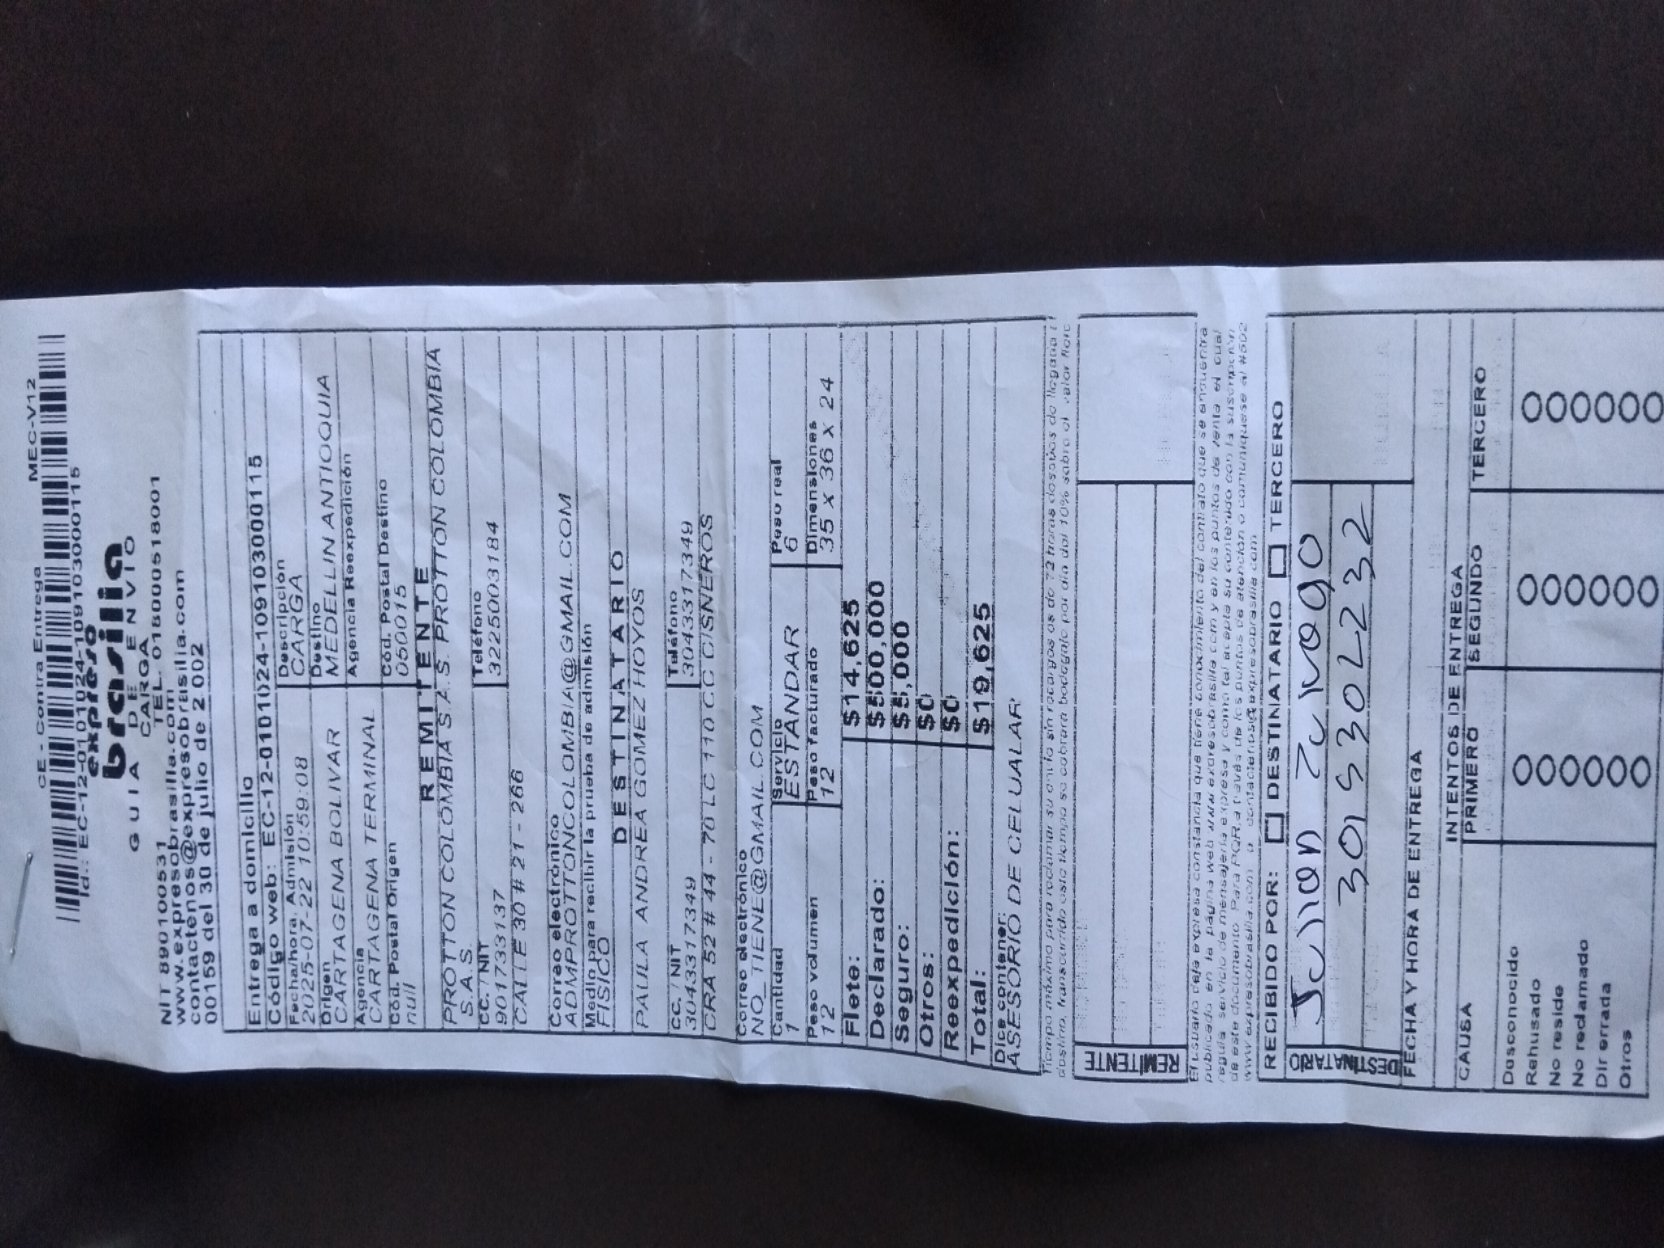 CE - Contra Entrega MEC-V12
Id.: EC-12-0101024-1091030000115
expreso
brasilia
GUIA DE ENVIO
CARGA
NIT 890100531 TEL. 018000518001
www.expresobrasilia.com
contactenos@expresobrasilia.com
00159 del 30 de julio de 2.002
Entrega a domicilio
Código web: EC-12-0101024-1091030000115
Fecha/hora. Admisión Descripción
2025-07-22 10:59:08 CARGA
Origen Destino
CARTAGENA BOLIVAR MEDELLIN ANTIOQUIA
Agencia Agencia Reexpedición
CARTAGENA TERMINAL
Cód. Postal Origen Cód. Postal Destino
null 050015
REMITENTE
PROTTON COLOMBIA S.A.S. PROTTON COLOMBIA
S.A.S.
CC. / NIT Teléfono
901733137 3225003184
CALLE 30 # 21 - 266
Correo electrónico
ADMPROTTONCOLOMBIA@GMAIL.COM
Medio para recibir la prueba de admisión
FISICO
DESTINATARIO
PAULA ANDREA GOMEZ HOYOS
CC. / NIT Teléfono
3043317349 3043317349
CRA 52 # 44 - 70 LC 110 CC CISNEROS
Correo electrónico
NO_TIENE@GMAIL.COM
Cantidad Servicio Peso real
1 ESTANDAR 6
Peso volumen Peso facturado Dimensiones
12 12 35 x 36 x 24
Flete: $14,625
Declarado: $500,000
Seguro: $5,000
Otros: $0
Reexpedición: $0
Total: $19,625
Dice contener:
ASESORIO DE CELUALAR
Tiempo máximo para reclamar su envío sin recargos es de 72 horas después de llegada
destino, transcurrido este tiempo se cobrará bodegaje por día del 10% sobre el valor flete
REMITENTE
El usuario deja expresa constancia que tiene conocimiento del contrato que se encuentra
publicado en la página web www.expresobrasilia.com y en los puntos de venta el cual
regula servicio de mensajería expresa y como tal acepta su contenido con la suscripción
de este documento. Para PQR a través de los puntos de atención o comuníquese al #502
www.expresobrasilia.com o contactenos@expresobrasilia.com
RECIBIDO POR: DESTINATARIO TERCERO
DESTINATARIO
Julian Zuluaga
3015302232
FECHA Y HORA DE ENTREGA
INTENTOS DE ENTREGA
CAUSA PRIMERO SEGUNDO TERCERO
Desconocido
Rehusado
No reside
No reclamado
Dir errada
Otros